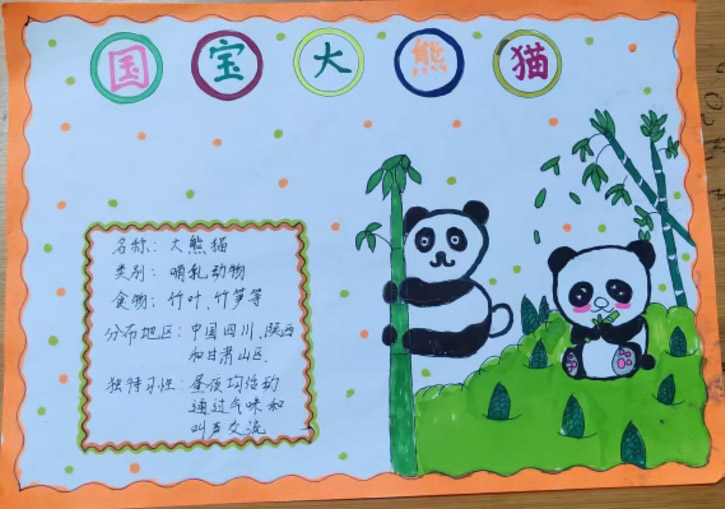 国宝大熊猫
名称：大熊猫
类别：哺乳动物
食物：竹叶、竹笋等
分布地区：中国四川、陕西
和甘肃山区.
独特习性：昼夜均活动
通过气味和
叫声交流